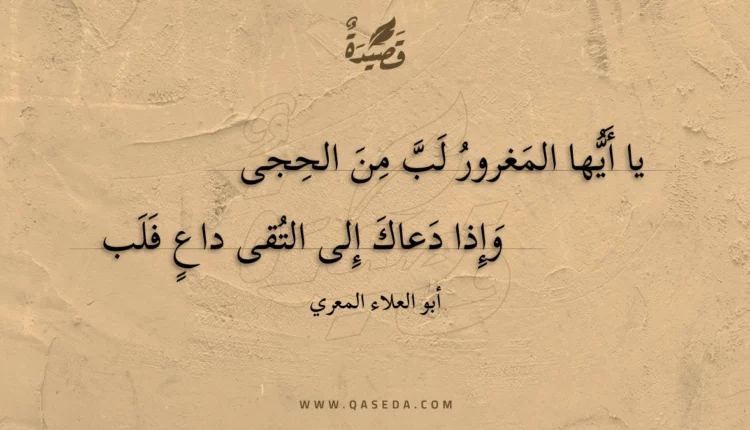 قَصِيدَةٌ
يا أَيُّها المَغرورُ لَبَّ مِنَ الحِجى
وَإِذا دَعاكَ إِلى التُقى داعٍ فَلَب
أبو العلاء المعري
WWW.QASEDA.COM